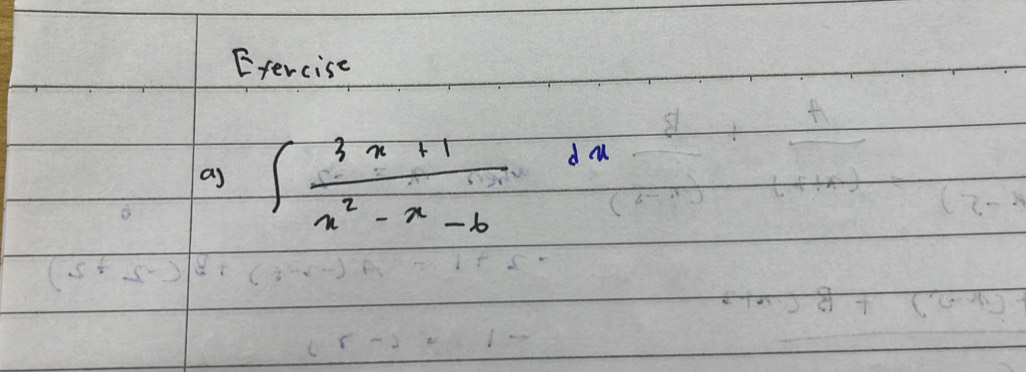 Exercise
a) ∫ (3x + 1)/(x² - x - 6) dx